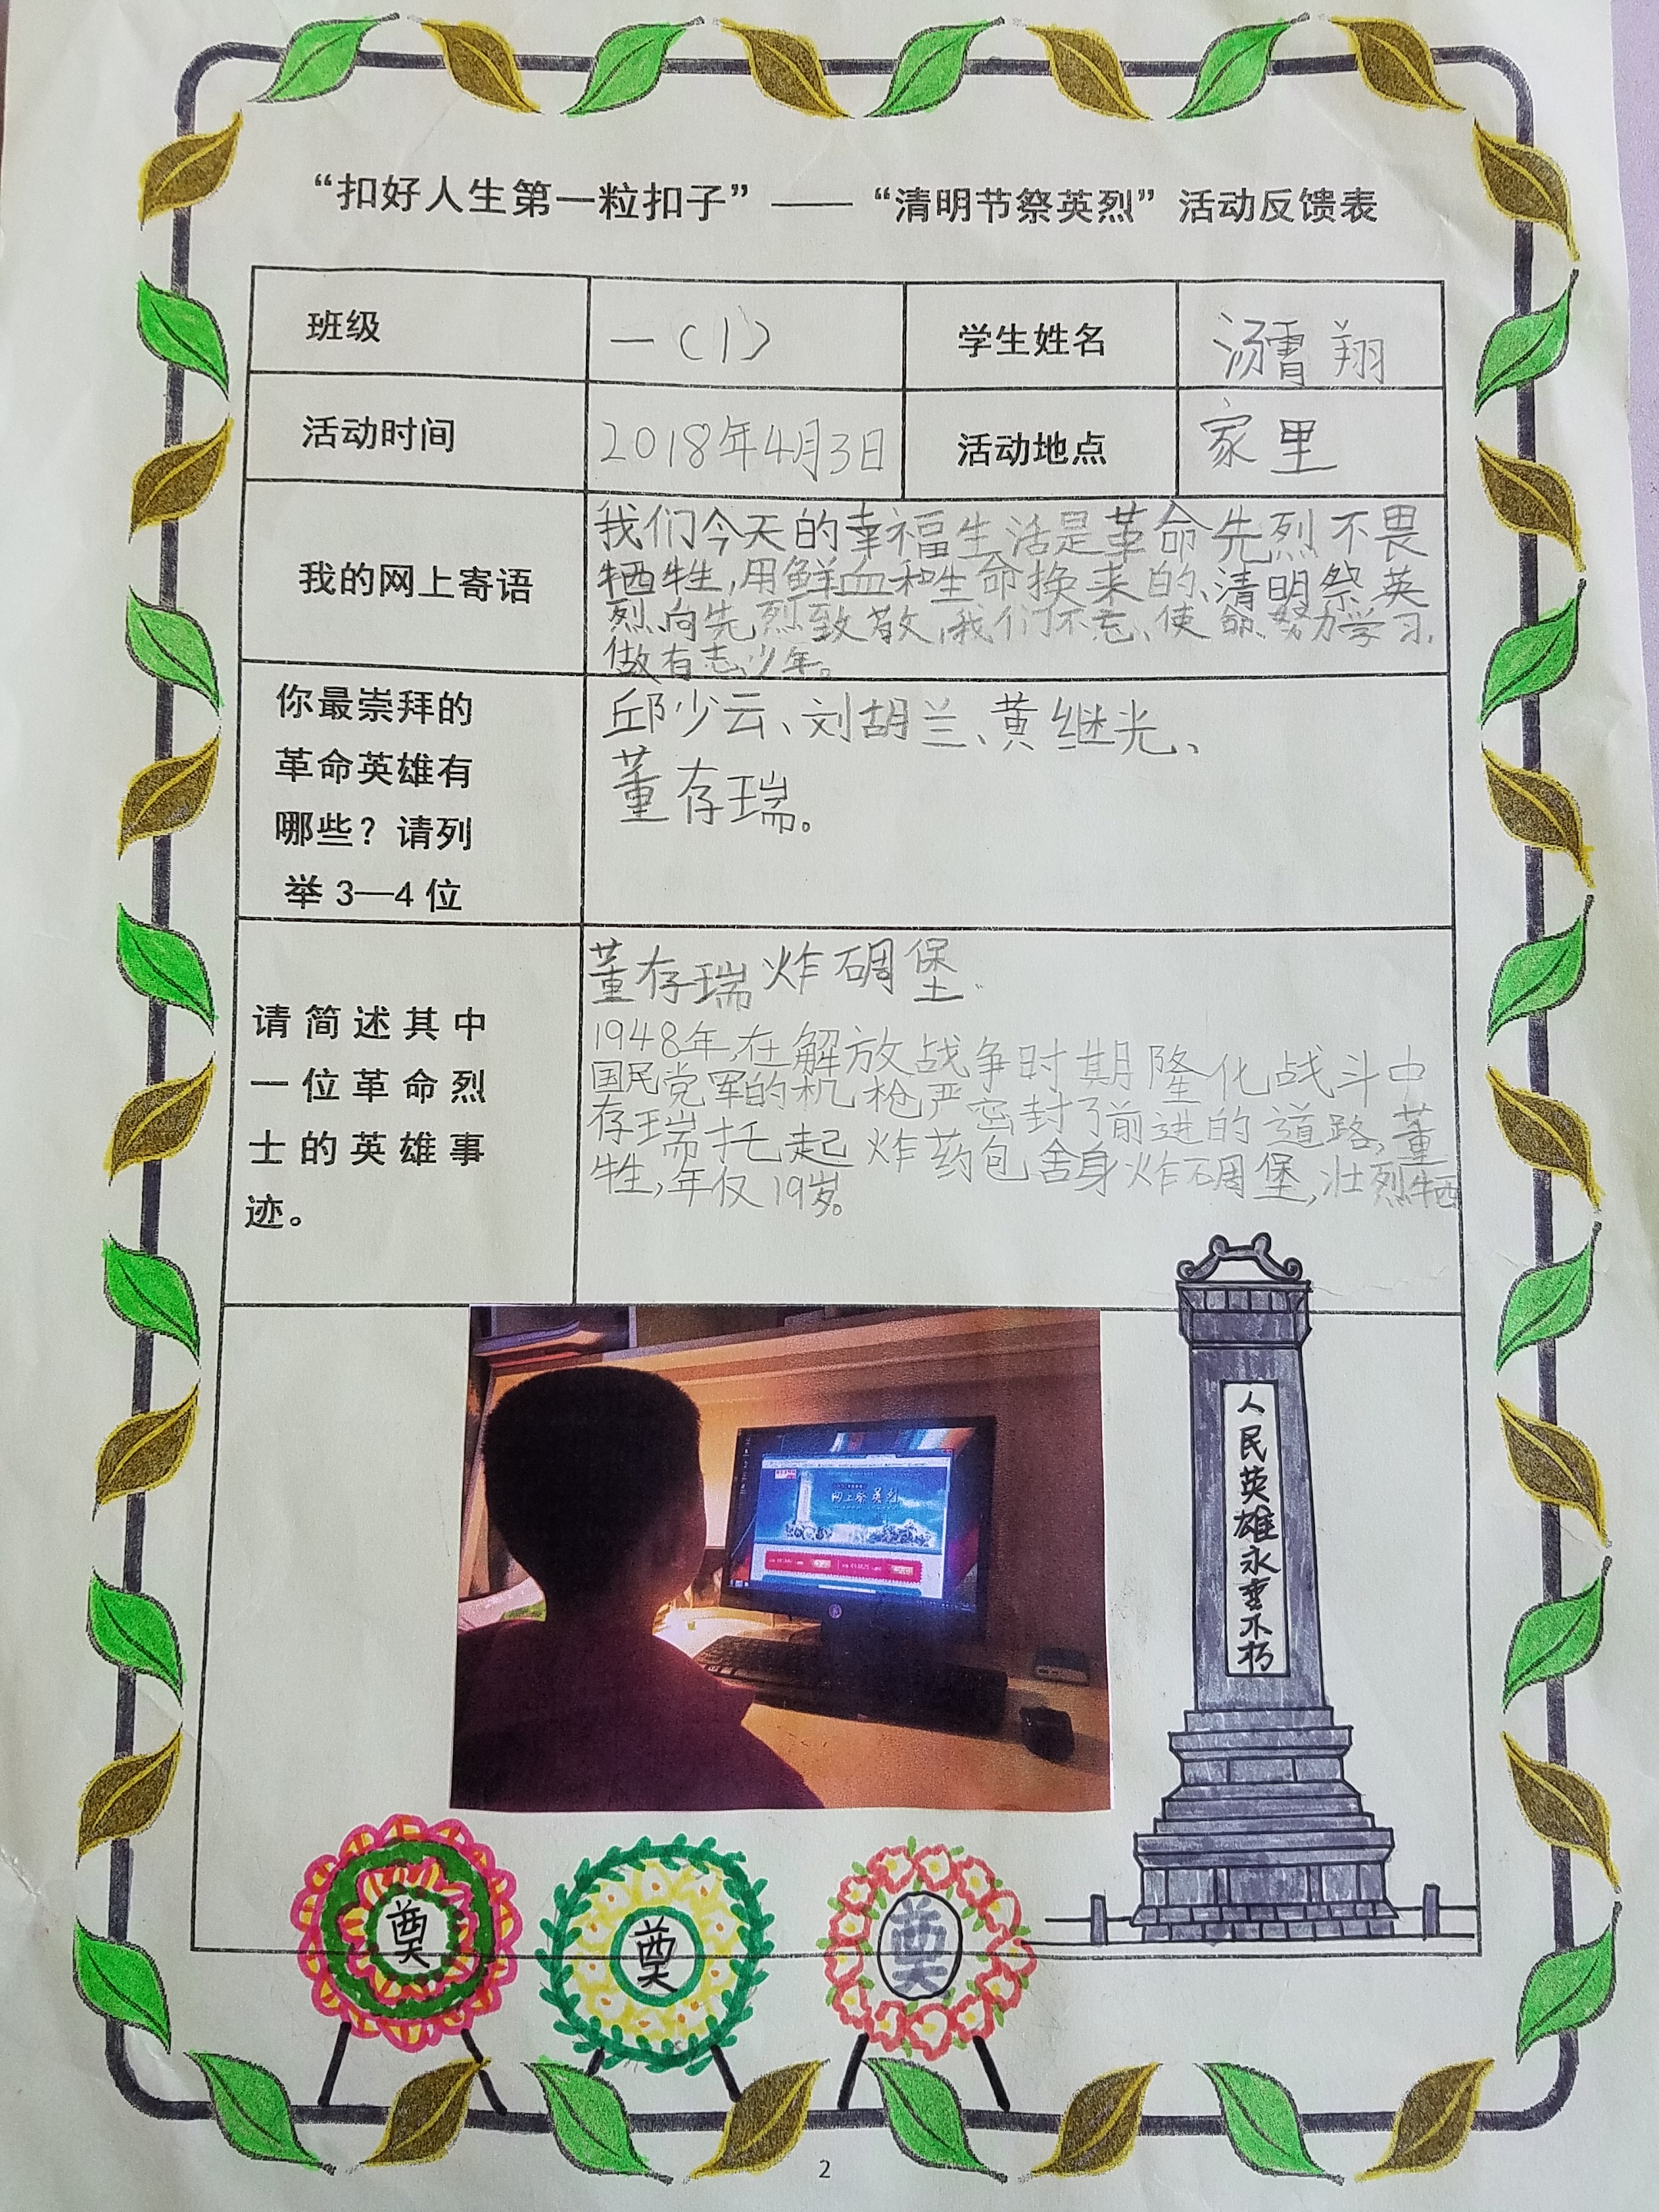 “扣好人生第一粒扣子”——“清明节祭英烈”活动反馈表
班级
一(1)
学生姓名
汤霄翔
活动时间
2018年4月3日
活动地点
家里
我的网上寄语
我们今天的幸福生活是革命先烈不畏
牺牲,用鲜血和生命换来的、清明祭英
烈、向先烈致敬,我们不忘、使命、努力学习、
做有志少年。
你最崇拜的
革命英雄有
哪些？请列
举3—4位
邱少云、刘胡兰、黄继光、
董存瑞。
请简述其中
一位革命烈
士的英雄事
迹。
董存瑞炸碉堡
1948年,在解放战争时期隆化战斗中
国民党军的机枪严密封了前进的道路,董
存瑞托起炸药包舍身炸碉堡,壮烈牺
牲,年仅19岁。
网上祭英烈
人民英雄永垂不朽
奠
奠
奠
2